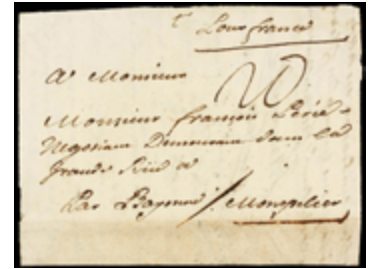 Pour france
A Monsieur
20
Monsieur françois Périé
Negotiant Demeurant dans la
Grande Ruë a
Par Bayonne / Monpelier